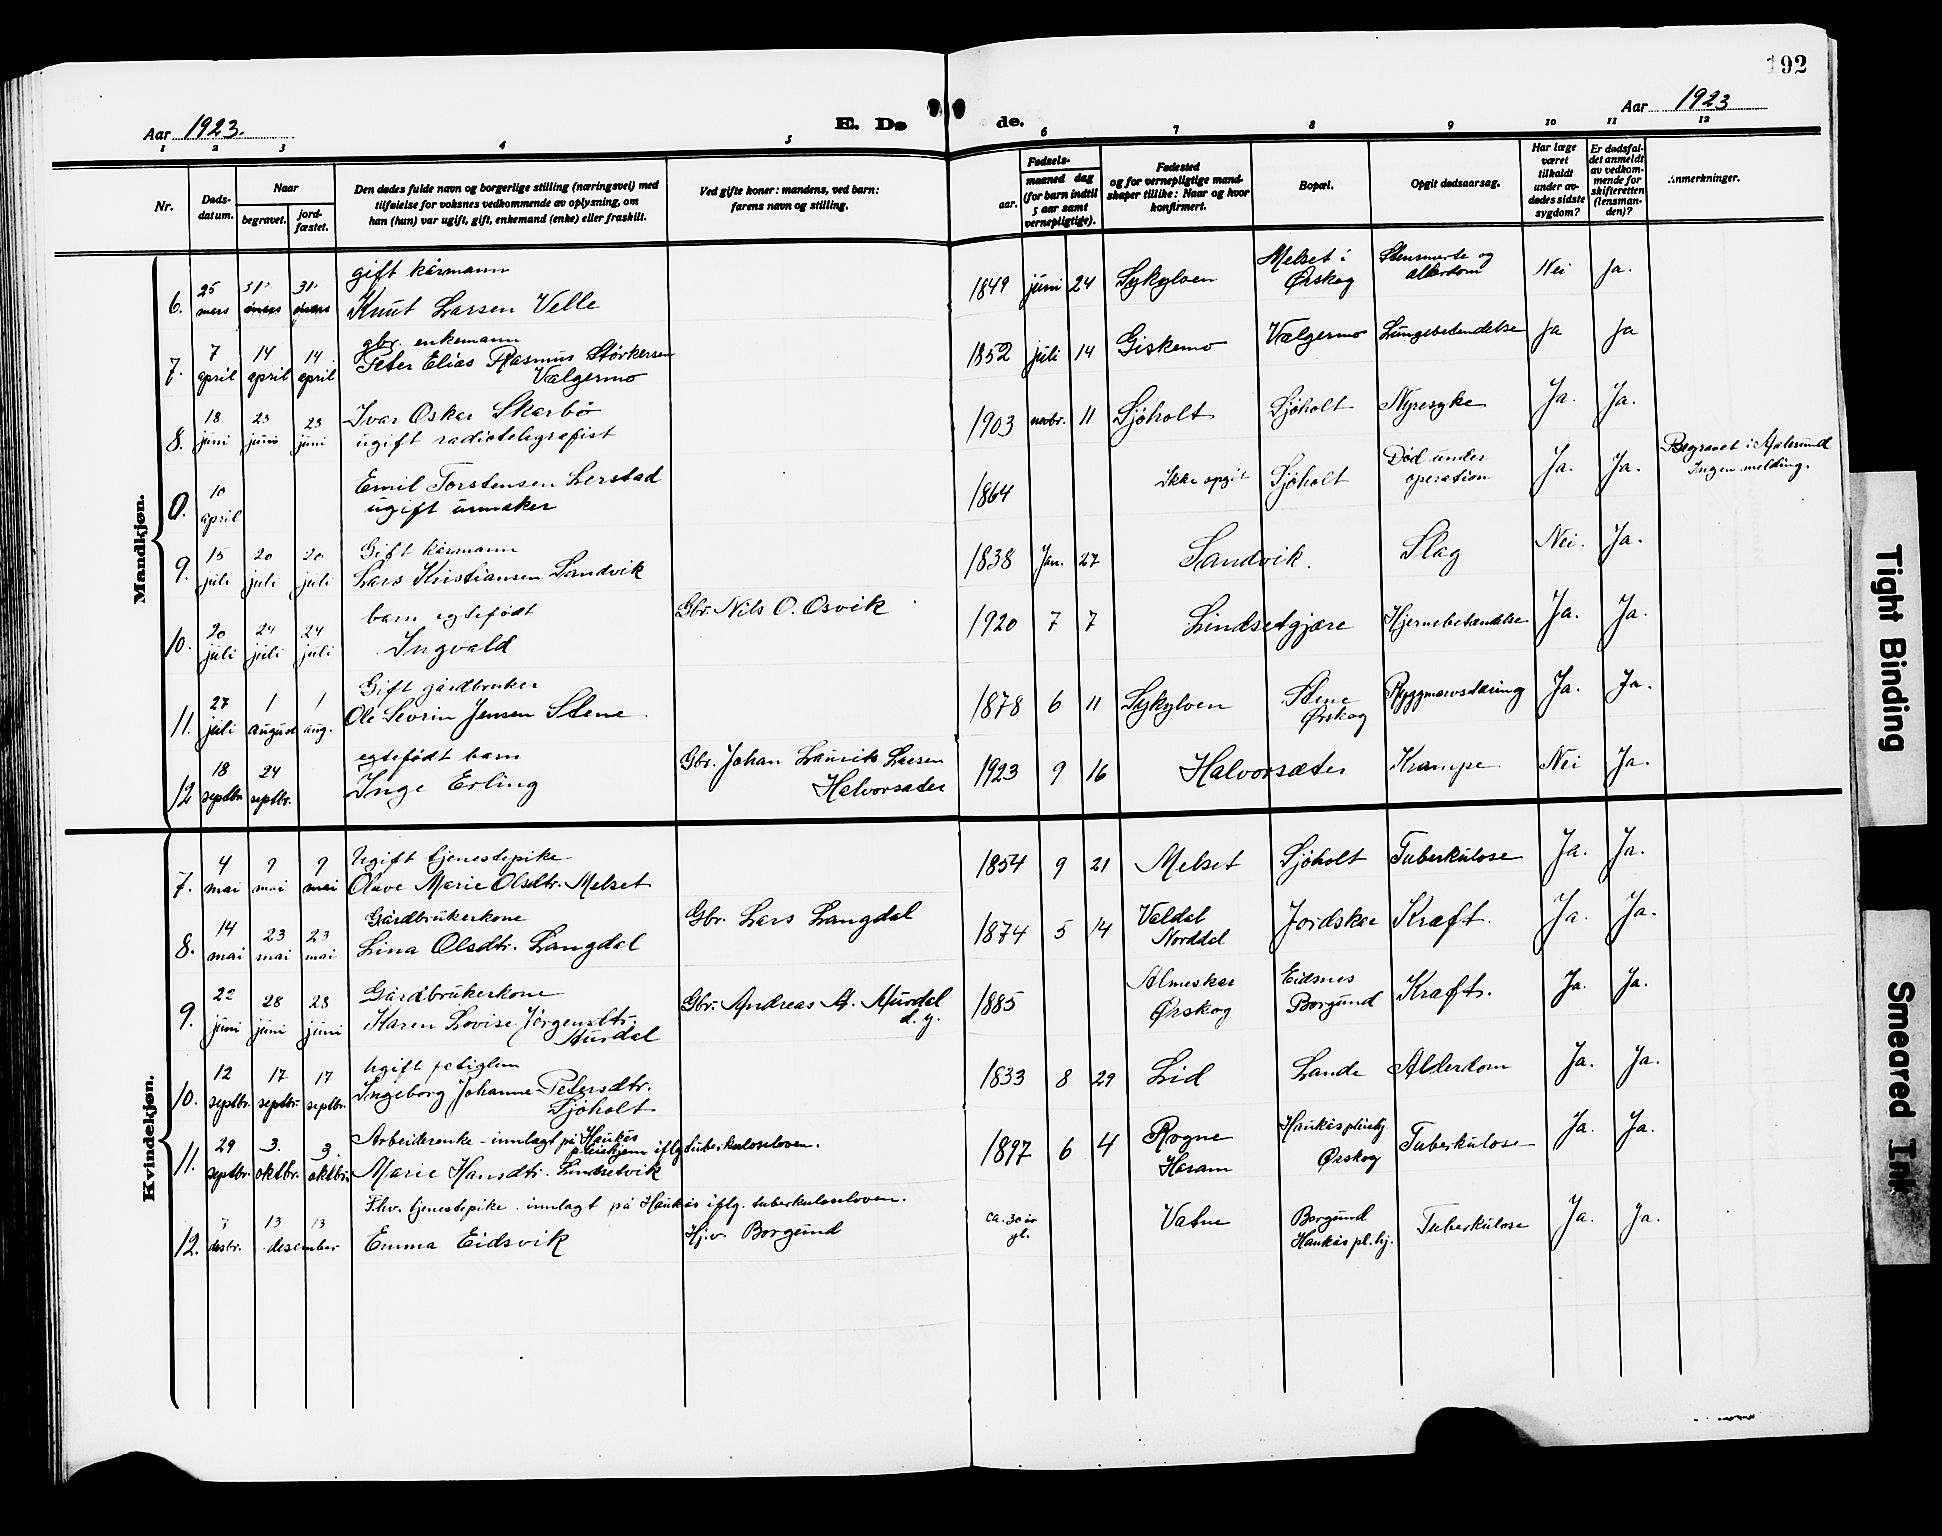 192
Aar 1923.
E. Dø de.
Aar 1923
1 2 3 4 5 6 7 8 9 10 11 12
Nr.
Døds-
datum.
Naar
begravet.
jord-
fæstet.
Den dødes fulde navn og borgerlige stilling (næringsvei) med
tilføielse for voksnes vedkommende av oplysning, om
han (hun) var ugift, gift, enkemand (enke) eller fraskilt.
Ved gifte koner: mandens, ved barn:
farens navn og stilling.
Fødsels-
aar.
maaned dag
(for barn indtil
5 aar samt
vernepligtige).
Fødested
og for vernepligtige mand-
skaper tillike: Naar og hvor
konfirmert.
Bopæl.
Opgit dødsaarsag.
Har læge
været
tilkaldt
under av-
dødes sidste
sygdom?
Er dødsfal-
det anmeldt
av vedkom-
mende for
skifteretten
(lensman-
den)?
Anmerkninger.
Mandkjøn.
6. 25 mars 31 mars 31 mars gift kårmann
Knut Larsen Velle 1849 juni 24 Sykylven Melset i Ørskog Stensmerte og alderdom Nei Ja.
7. 7 april 14 april 14 april gbr. enkemann
Peter Elias Rasmus Størkersen
Vælgermo 1852 juli 14 Giskemo Vælgermo Lungebetendelse Ja Ja
8. 18 juni 23 juni 23 juni Ivar Oskar Skarbø
ugift radiotelegrafist 1903 novbr. 11 Sjøholt Sjøholt Nyresyke Ja. Ja.
0. 10 april Emil Torstensen Lerstad
ugift urmaker 1864 Ikke opgit Sjøholt Død under operation Ja. Ja. Begravet i Aalesund
Ingen melding.
9. 15 juli 20 juli 20 juli Gift kårmann
Lars Kristiansen Sandvik 1838 Jan. 27 Sandvik. Slag Nei. Ja.
10. 20 juli 24 juli 24 juli barn egtefødt
Ingvald Gbr. Nils O. Osvik 1920 7 7 Lindsetgjære Hjernebetændelse Ja. Ja.
11. 27 juli 1 august 1 aug. Gift gårdbruker
Ole Severin Jensen Stene 1878 6 11 Sykylven Stene Ørskog Ryggmarvstæring Ja. Ja.
12 18 septbr. 24 septbr. egtefødt barn
Inge Erling Gbr. Johan Laurits Larsen
Halvorsæter 1923 9 16 Halvorsæter Krampe Nei Ja.
Kvindekjøn.
7. 4 mai 9 mai 9 mai Ugift tjenestepike
Olave Marie Olsdtr. Melset 1854 9 21 Melset Sjøholt Tuberkulose Ja. Ja.
8. 14 mai 23 mai 23 mai Gårdbrukerkone
Lina Olsdtr. Langdal Gbr. Lars Langdal 1874 5 14 Valdal Norddal Jordskar Kræft. Ja. Ja.
9. 22 juni 28 juni 28 juni Gårdbrukerkone
Karen Lovise Jørgensdtr.
Aursdal Gbr. Andreas A. Aursdal
d. y. 1885 Almeskar Ørskog Eidsnes Borgund Kræft. Ja. Ja.
10. 12 septbr. 17 septbr. 17 septbr. Ugift fatiglem
Ingeborg Johanne Petersdtr.
Sjøholt 1833 8 29 Lid Lande Alderdom Ja. Ja.
11. 29 septbr. 3. oktbr. 3. oktbr. Arbeiderenke - innlagt på Haukås
pleiehjem iflg. tuberkuloseloven.
Marie Hansdtr. Lindsetvik 1897 6 4 Rogne Haram Haukås pleiehj. Ørskog Tuberkulose Ja. Ja.
12. 7 desbr. 13 13 desember Fhv. tjenestepike innlagt på Haukås iflg. tuberkuloseloven.
Emma Eidsvik Hj.v. Borgund ca. 30 år gl. Vatne Borgund Haukås pl.hj. Tuberkulose Ja. Ja.
Tight Binding
Smeared Ink